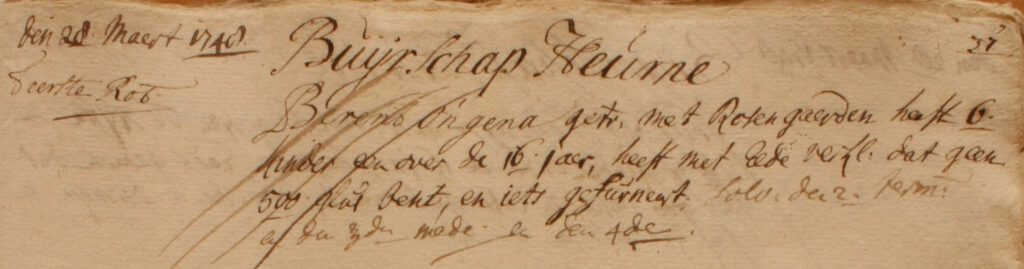 den 28 Maert 1748.
37
Buijrschap Heurne
Eerste Rot.
Berent Ongena getr. met Rosengaerden heeft 6.
kinder een over de 16. jaer, heeft met Eede verkl. dat geen
500 guld bent, en iets gefurneert. Solv. den 2. term:
en den 3den mede en den 4de.